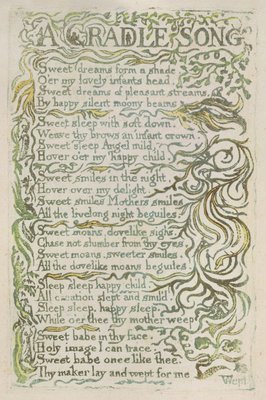 A CRADLE SONG
Sweet dreams form a shade.
O'er my lovely infants head.
Sweet dreams of pleasant streams.
By happy silent moony beams
Sweet sleep with soft down.
Weave thy brows an infant crown.
Sweet sleep Angel mild,
Hover o'er my happy child.
Sweet smiles in the night,
Hover over my delight.
Sweet smiles Mothers smiles
All the livelong night beguiles.
Sweet moans, dovelike sighs,
Chase not slumber from thy eyes,
Sweet moans, sweeter smiles,
All the dovelike moans beguiles.
Sleep sleep happy child.
All creation slept and smil'd.
Sleep sleep, happy sleep,
While o'er thee thy mother weep
Sweet babe in thy face,
Holy image I can trace.
Sweet babe once like thee,
Thy maker lay and wept for me
Wept